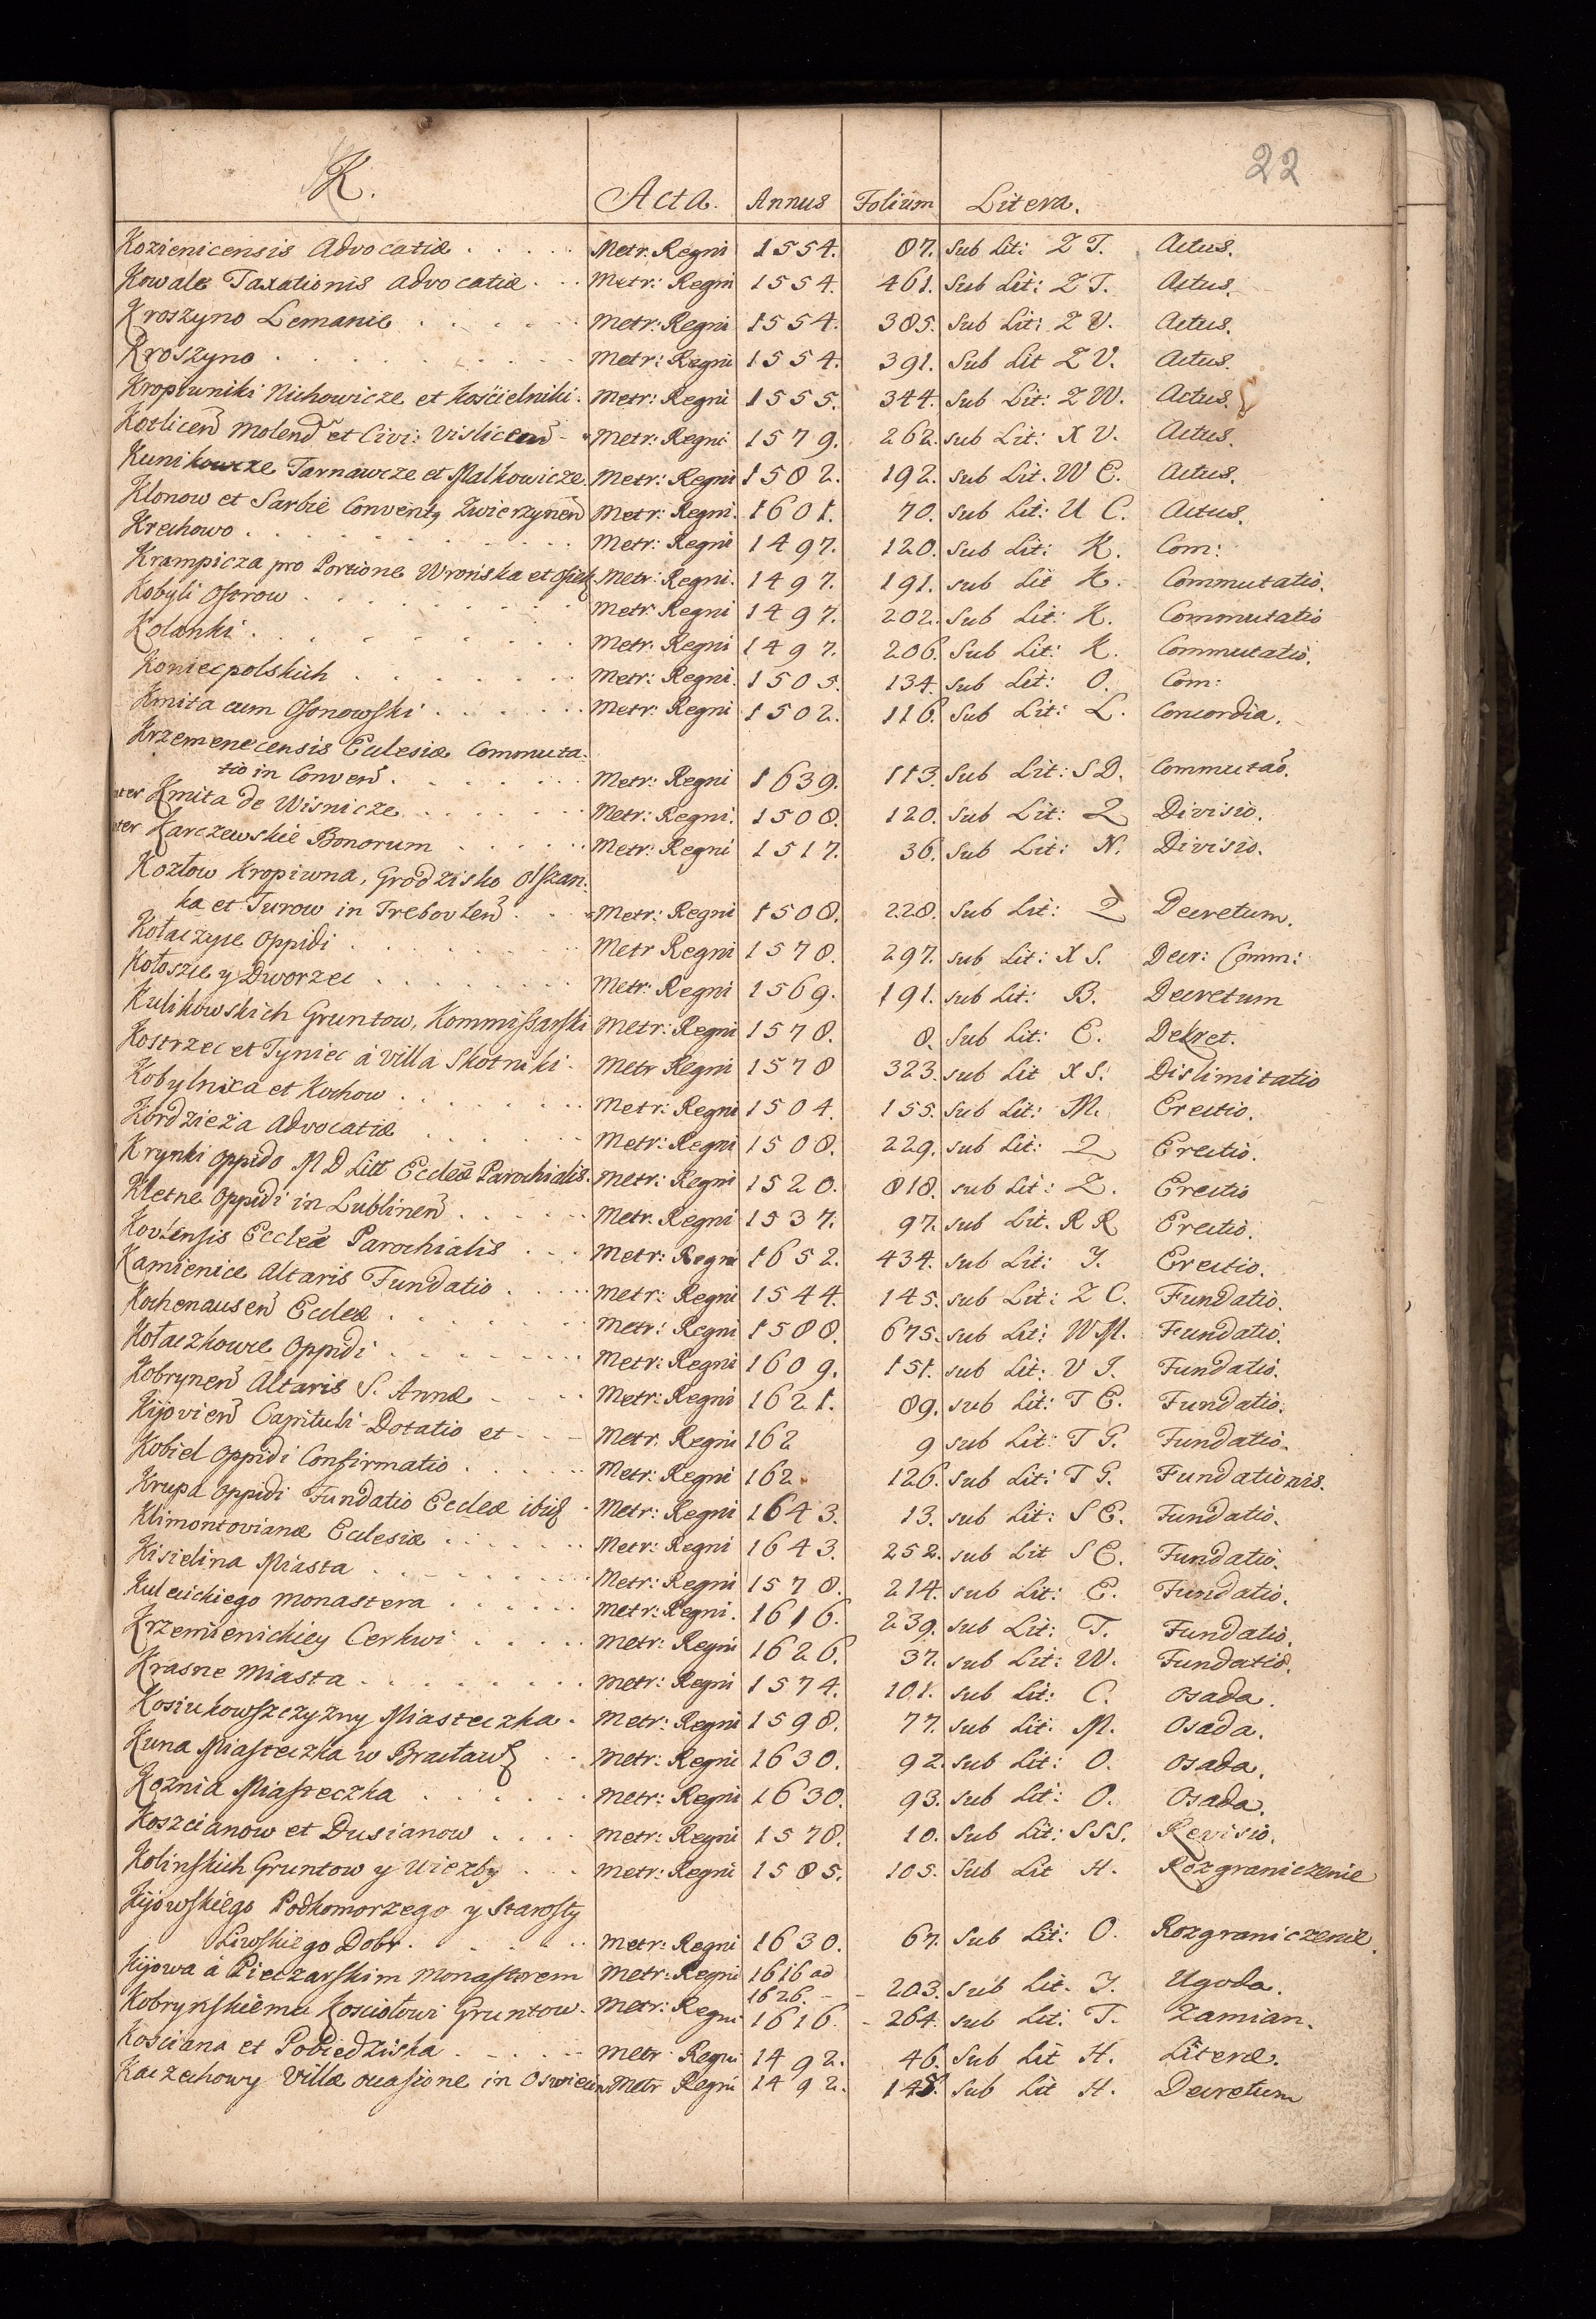 22
K. Acta. Annus Folium Litera.
Kozienicensis Advocatiæ . . . . . Metr: Regni 1554. 87. Sub Lit: Z T. Actus.
Kowale Taxationis advocatiæ . . . Metr: Regni 1554. 461. Sub Lit: Z T. Actus.
Kroszyno Lemanie . . . . . . Metr: Regni 1554. 385. Sub Lit: Z V. Actus.
Kroszyno . . . . . . . . . Metr: Regni 1554. 391. Sub Lit Z V. Actus.
Kropiwniki Nichowicze et Kościelniki . Metr: Regni 1555. 344. Sub Lit: Z W. Actus.
Kotlicen̄ Molend et Civi: Vislicen̄ - Metr: Regni 1579. 262. Sub Lit: X V. Actus.
Kunikowcze Tarnawcze et Malkowicze. Metr: Regni 1582. 192. Sub Lit. W E. Actus.
Klonow et Sarbie Conventq Zwierzynen̄ Metr: Regni. 1601. 70. Sub Lit: U C. Actus.
Krechowo . . . . . . . . . Metr: Regni 1497. 120. Sub Lit: K. Com:
Krampicza pro Portione Wrońska et Osiek Metr: Regni. 1497. 191. sub Lit K. Commutatio.
Kobyli Ostrow . . . . . . . . Metr: Regni 1497. 202. Sub Lit: K. Commutatio
Kolanki . . . . . . . . . Metr: Regni 1497. 206. Sub Lit: K. Commutatio.
Koniecpolskich . . . . . . . Metr: Regni. 1505. 134. Sub Lit: O. Com:
Kmita cum Osonowski . . . . . . Metr: Regni 1502. 116. Sub Lit: L. Concordia.
Krzemenecensis Eclesiæ Commuta-
tio in Conven̄ . . . . . . Metr: Regni 1639. 113. Sub Lit: S D. Commutaõ.
nter Kmita de Wisnicze . . . . . . Metr: Regni. 1508. 120. Sub Lit: 2 Divisio.
nter Karczewskie Bonorum . . . . . Metr: Regni 1517. 36. Sub Lit: N. Divisio.
Kozłow Kropiwna, Grodzisko Olszan-
ka et Turow in Trebovlen̄ . . . Metr: Regni 1508. 228. Sub Lit: 2 Decretum.
Kołaczyce Oppidi . . . . . . . Metr Regni 1578. 297. sub Lit: X S. Decr: Comm:
Kołoszcze y Dworzec . . . . . . . Metr: Regni 1569. 191. sub Lit: B. Decretum
Kulikowskich Gruntow, Kommissarski Metr: Regni 1578. 8. Sub Lit: E. Dekret.
Kostrzec et Tyniec á villa Skotniki . Metr Regni 1578 323. sub Lit X S. Dislimitatio
Kobylnixa et Kochow . . . . . . . Metr: Regni 1504. 155. Sub Lit: M. Erectio.
Kordzieża Advocatiæ . . . . . . Metr: Regni 1508. 229. sub Lit: 2 Erectio.
Krynki oppido M D Litt Eccleæ Parochialis. Metr: Regni 1520. 818. sub Lit: Z. Erectio
Kletne Oppidi in Lublinen̄ . . . . . Metr. Regni 1537. 97. sub Lit. R R Erectio.
Kovlensis Eccleæ Parochialis . . . Metr: Regni 1652. 434. sub Lit: J. Erectio.
Kamienice Altaris Fundatio . . . . . Metr: Regni 1544. 145. sub Lit: Z C. Fundatio.
Kochenausen̄ Eccleæ . . . . . . . Metr: Regni 1588. 675. sub Lit: W M. Fundatio.
Kołaczkowce Oppidi . . . . . . . Metr: Regni 1609. 151. sub Lit: V J. Fundatio.
Kobrynen̄ Altaris S. Annæ - . . . . Metr: Regni 1621. 89. sub Lit: T E. Fundatio.
Kijovien̄ Capituli Dotatio et - - - Metr. Regni 162 9 sub Lit: T G. Fundatio.
Kobiel oppidi Confirmatio . . . . . Metr: Regni 162. 126. sub Lit: T G. Fundationis.
Krupa oppidi Fundatio Eccleæ ibiq - Metr: Regni 1643. 13. sub Lit: S E. Fundatio.
Klimontovianæ Eclesiæ . . . . . . . Metr: Regni 1643. 252. sub Lit S E. Fundatio.
Kisielina Miasta . . . . . . . . Metr: Regni 1578. 214. sub Lit: E. Fundatio.
Kulcuickiego Monastera . . . . . . Metr: Regni. 1616. 239. sub Lit: T. Fundatio.
Krzemienickiey Cerkwi . . . . . Metr: Regni 1626. 37. sub Lit: W. Fundatio.
Krasne Miasta . . . . . . . . Metr: Regni 1574. 101. sub Lit: C. Osada.
Kosiukowszczyzny Miasteczka . Metr: Regni 1598. 77. sub Lit: M. Osada.
Kuna Miasteczka w Bracław . . Metr: Regni 1630. 92. sub Lit: O. Osada.
Koznia Miasteczka . . . . . . Metr: Regni 1630. 93. sub Lit: O. Osada.
Koszcianow et Dusianow . . . . Metr: Regni 1578. 10. Sub Lit: SSS. Revisio.
Kolinskich Gruntow y Uiezby . . . Metr: Regni 1585. 105. Sub Lit H. Rozgraniczenie
Kijowskiego Podkomorzego y Starosty
Liwskiego Dobr . . . . . . Metr: Regni 1630. 67. Sub Lit: O. Rozgraniczenie.
Kijowa á Pieczarskim Monasterem Metr: Regni 1616 ad
1626. - - 203. Sub Lit. J. Ugoda.
Kobrynskiemu Kosciołowi Gruntow. Metr: Regni 1616. - 264. sub Lit: T. Zamian.
Kosciana et Pobiedziska . . . . . Metr Regni 1492. 46. Sub Lit H. Literæ.
Kaczechowy Villæ ocasione in Oswiecim Metr Regni 1492. 148. Sub Lit H. Decretum